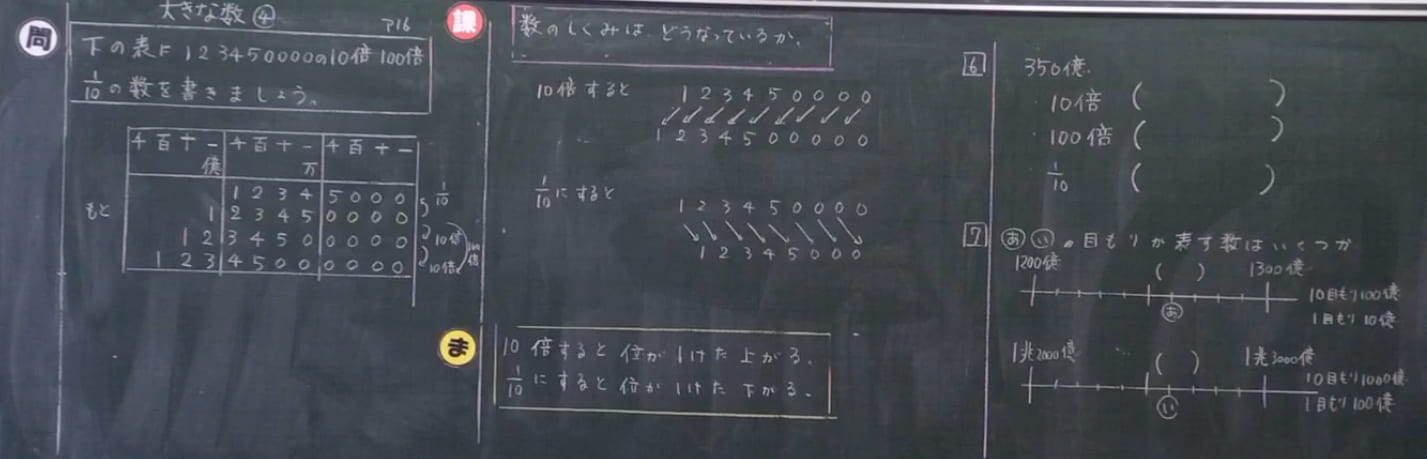 大きな数④
P16
問
下の表に123450000の10倍100倍
1/10の数を書きましょう。
千百十一 千百十一 千百十一
億 万
1 2 3 4 5 0 0 0
もと 1 2 3 4 5 0 0 0 0
1 2 3 4 5 0 0 0 0 0
1 2 3 4 5 0 0 0 0 0 0
1/10
10倍
10倍
100倍
課
数のしくみは どうなっているか。
10倍すると 1 2 3 4 5 0 0 0 0
1 2 3 4 5 0 0 0 0 0
1/10にすると 1 2 3 4 5 0 0 0 0
1 2 3 4 5 0 0 0
ま
10倍すると位が1けた上がる。
1/10にすると位が1けた下がる。
6 350億
10倍 ( )
100倍 ( )
1/10 ( )
7 あ い の目もりが表す数はいくつか
1200億 ( ) 1300億
10目もり100億
1目もり10億
あ
1兆2000億 … ( ) 1兆3000億
10目もり1000億
1目もり100億
い